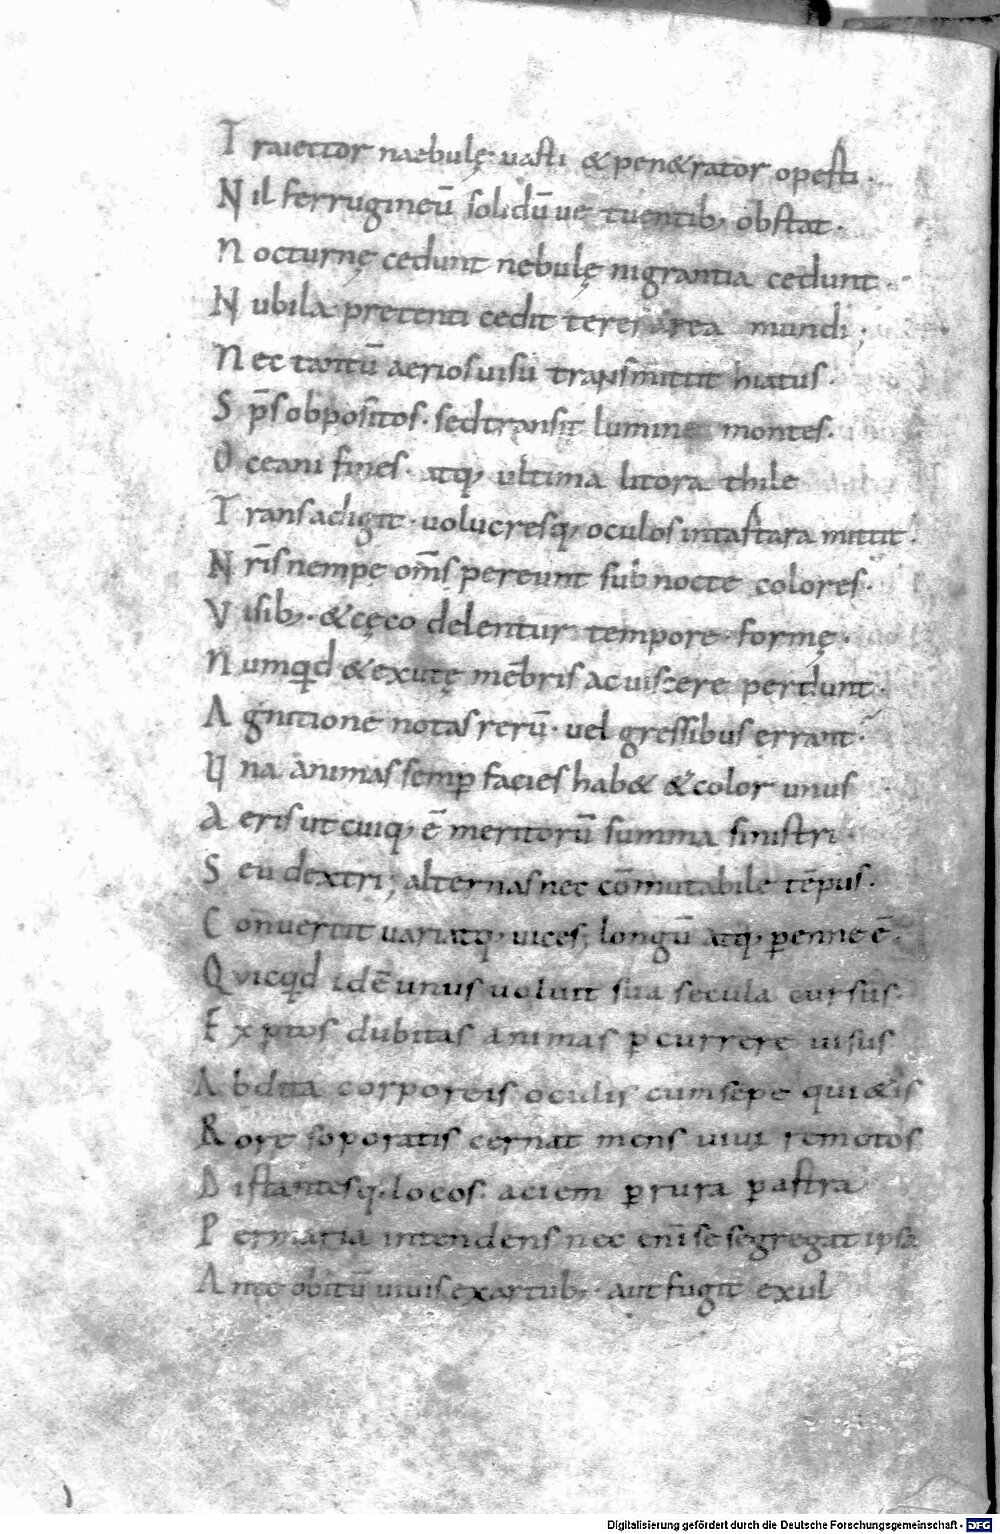 Traiector naebulę uasti & pen&rator opesti.
Nil ferrugineū solidū ue tuentib; obstat.
Nocturnę cedunt nebulę nigrantia cedunt.
Nubila pretenti cedit teres area mundi;
Nec tantū aerios uisū transmittit hiatus.
S p̄s obpositos. sed transit lumine montes.
Oceani fines. atq; ultima litora thile
Transadigit. uolucresq; oculos intastara mittit.
Nr̄is nempe om̄s pereunt sub nocte colores.
Visib;. & cęco delentur tempore formę.
Numqid & exutę mēbris ac uiscere perdunt.
Agnitione notas rerū. uel gressibus errant.
Una animas semp̄ facies hab& & color unus
Aeris ut cuiq; ē meritorū summa sinistri
Seu dextri; alternas nec cōmutabile tēpus.
Conuertit uariatq; uices; longū atq; p̄enne ē.
Qvicqid idē unus uoluit sua secula cursus.
Exp̄tos dubitas animas p̄currere uisus
Abdita corporeis oculis cum sepe qui&is
Rore soporatis cernat mens uiui remotos
Distantesq; locos. aciem p̄ rura p̄ astra
Permaria intendens nec eni se segregat ipsa
Ante obitū uiuis exartub;. aut fugit exul
Digitalisierung gefördert durch die Deutsche Forschungsgemeinschaft - DFG